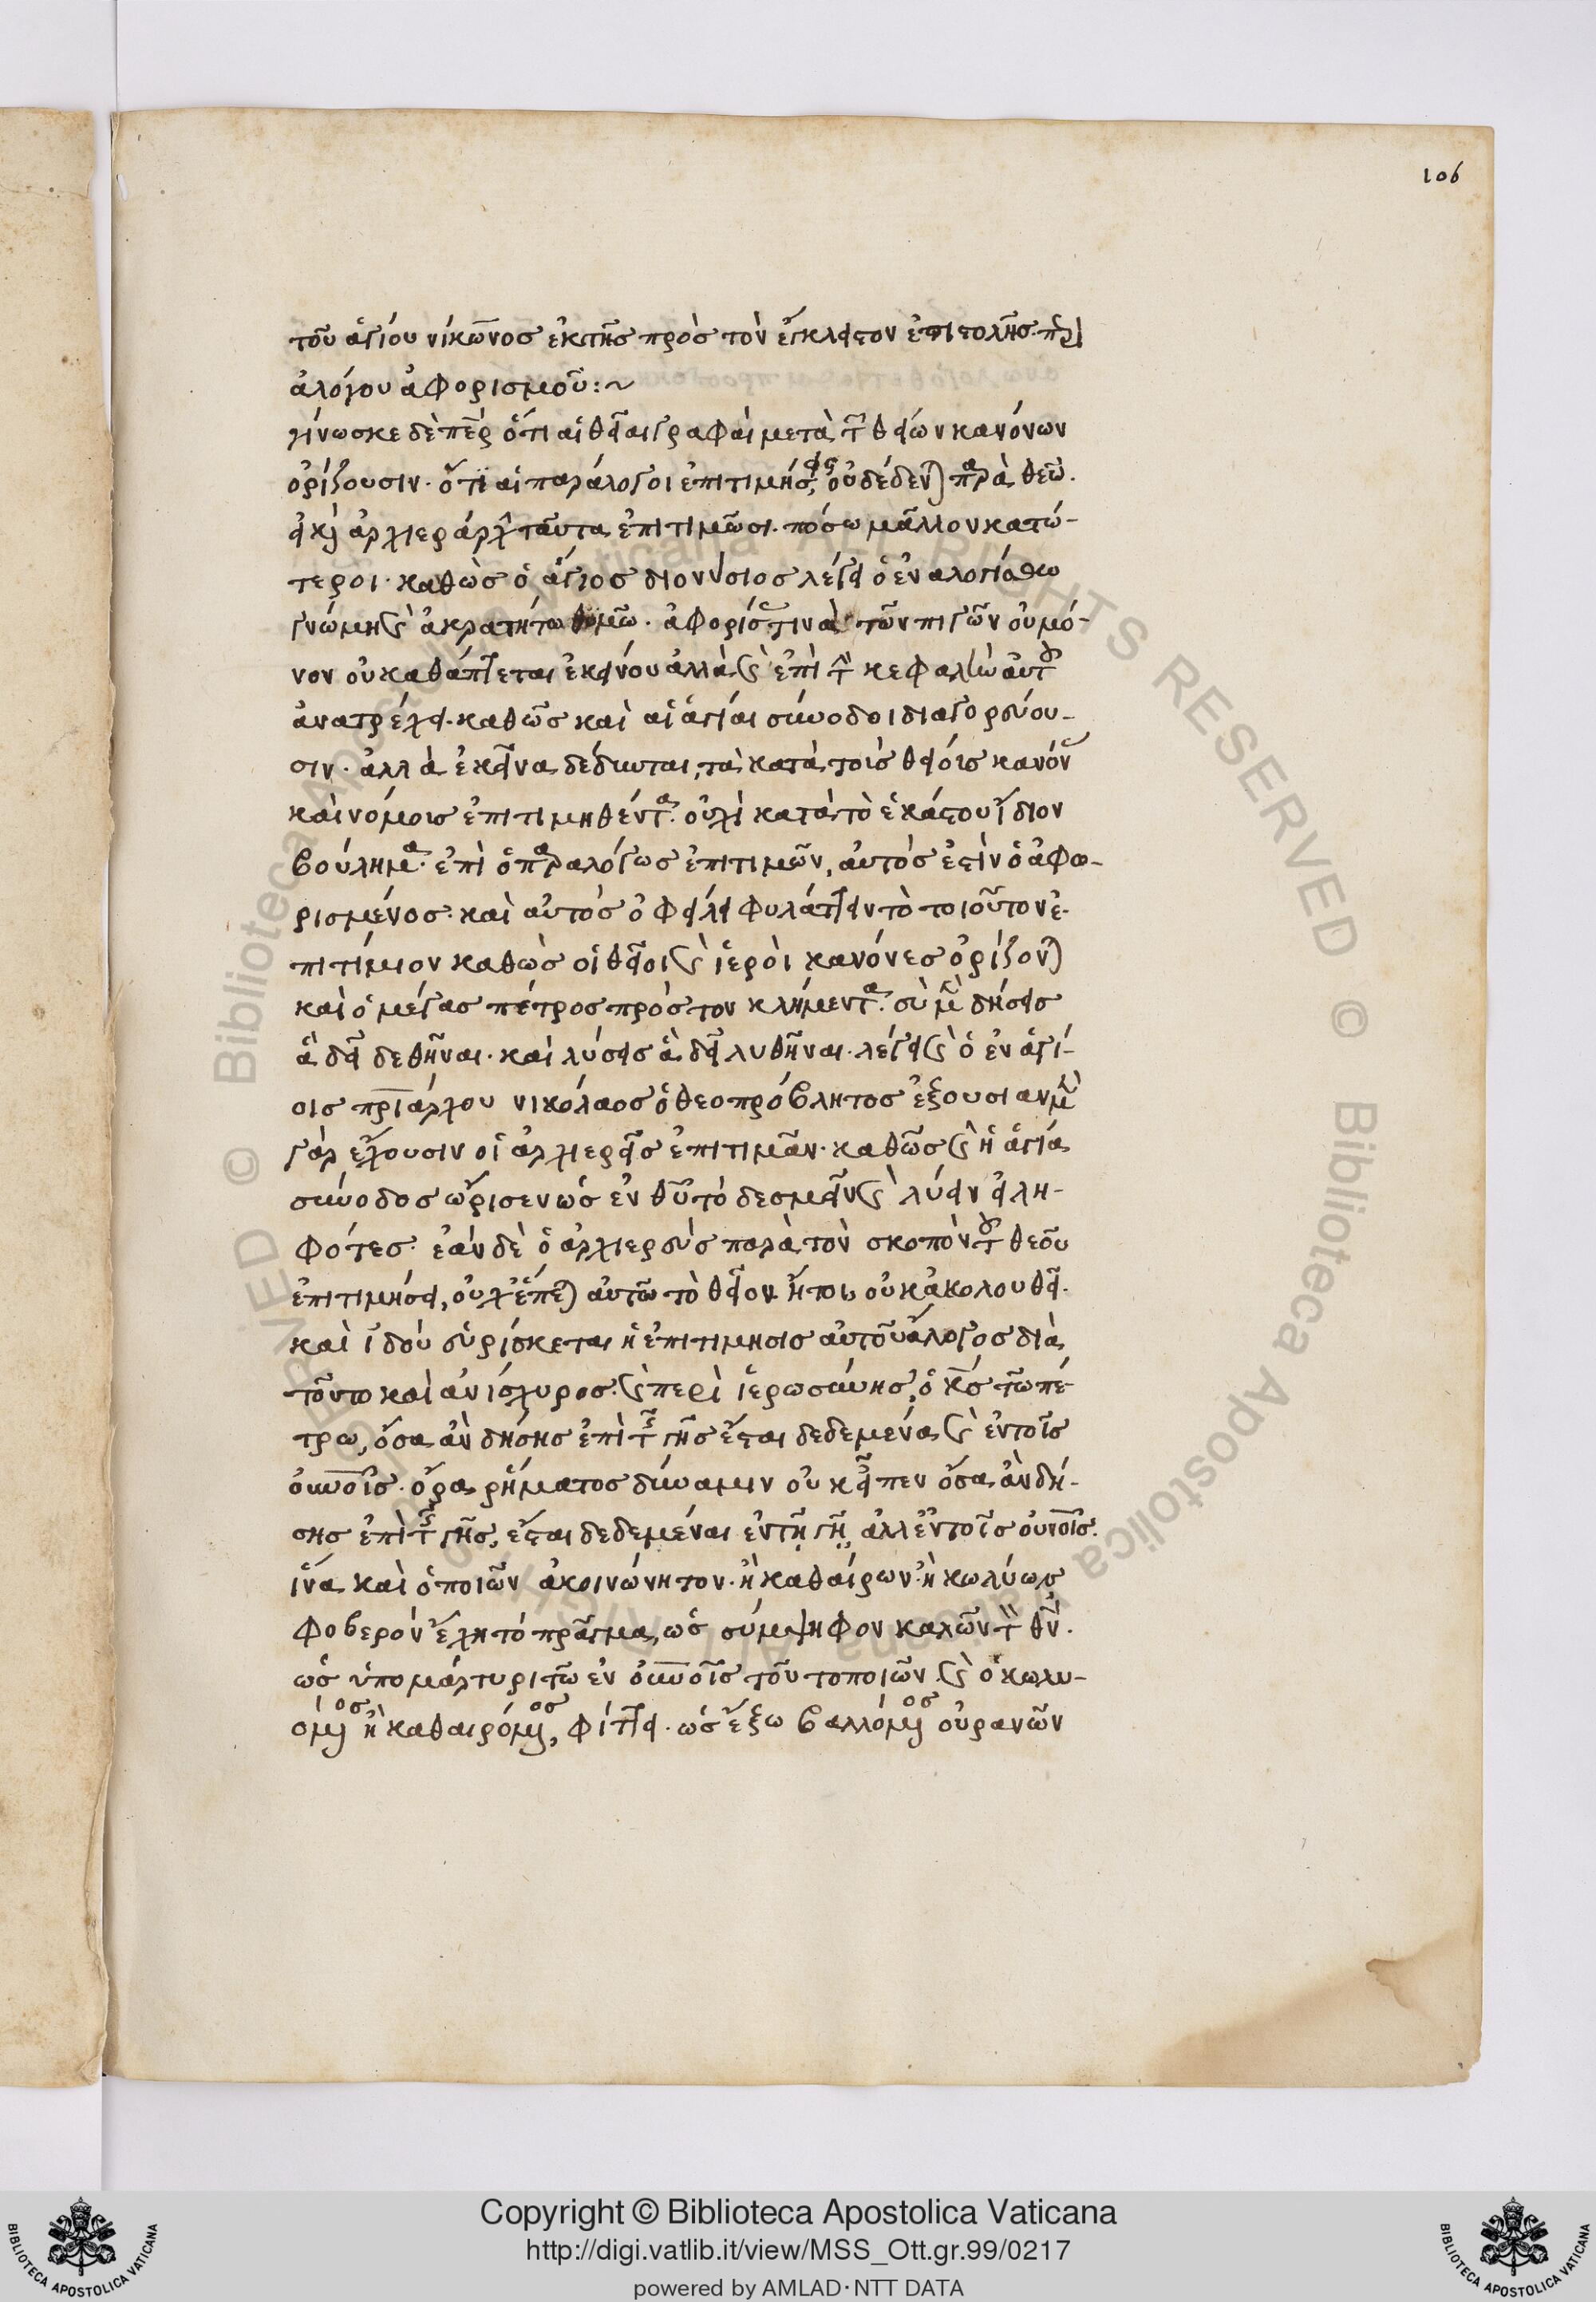 106
τοῦ ἁγίου νίκωνος ἐκ τῆς πρὸς τὸν ἔγκλειστον ἐπιστολῆς περὶ
ἀλόγου ἀφορισμοῦ:~
γίνωσκε δὲ περ ὅτι αἱ θεῖαι γραφαὶ μετὰ τῶν θείων κανόνων
ὁρίζουσιν. ὅτι αἱ παράλογοι ἐπιτιμήσεις, οὐ δέδενται παρὰ θεῶ.
καὶ ταῦτα ἐπιτιμῶσι. πόσω μᾶλλον κατώ-
τεροι. καθὼς ὁ ἅγιος διονύσιος λέγει ὁ ἐν αλογίστω
γνώμη καὶ ἀκρατήτω θυμῶ. ἀφορίσας τινὰ τῶν πιστῶν οὐ μό-
νον οὐ καθάπτεται ἐκείνου ἀλλὰ καὶ ἐπὶ τὴν κεφαλὴν αὐτοῦ
ἀνατρέχει. καθῶς καὶ αἱ ἁγίαι σύνοδοι διαγορεύου-
σιν. ἀλλὰ ἐκεῖνα δέδενται, τὰ κατὰ τοῖς θείοις κανόσι
καὶ νόμοις ἐπιτιμηθέντα. οὐχὶ κατὰ τὸ ἑκάστου ἴδιον
βούλημα. ἐπὶ ὁ παραλόγως ἐπιτιμῶν, αὐτός ἐστὶν ὁ ἀφω-
ρισμένος. καὶ αὐτός ὀφείλει φυλάττειν τὸ τοιοῦτον ἐ-
πιτίμιον καθὼς οἱ θεῖοι καὶ ἱεροὶ κανόνες ὁρίζονται
καὶ ὁ μέγας πέτρος πρὸς τον κλήμεντα. σὺ μὲν δήσεις
ἃ δεῖ δεθῆναι. καὶ λύσεις ἃ δεῖ λυθῆναι. λέγει καὶ ὁ ἐν ἁγί-
οις πριάρχου νικόλαος ὁ θεοπρόβλητος ἐξουσιαν μὲν
γὰρ ἔχουσιν οἱ ἀρχιερεῖς ἐπιτιμᾶν. καθῶς καὶ ἡ ἁγία
σύνοδος ὥρισεν ὡς ἐν θυ τὸ δεσμεῖν καὶ λύειν εἰλη-
φότες. ἐὰν δὲ ὁ ἀρχιερεὺς παρὰ τὸν σκοπὸν τοῦ θεοῦ
ἐπιτιμήσει, οὐχ ἕπεται αὐτῶ τὸ θεῖον ἤτοι οὐκ ἀκολουθεῖ.
καὶ ἰδοὺ εὑρίσκεται ἡ ἐπιτιμησις αὐτοῦ ἄλογος διὰ
τοῦτο καὶ ἀνίσχυρος. καὶ περὶ ἱερωσύνης, ὁ κς τῶ πέ-
τρω, ὅσα ἀν δήσης ἐπὶ τῆς γῆς ἔσται δεδεμένα καὶ ἐν τοῖς
οὐνοῖς. ὅρα ρήματος δύναμιν οὐκ εἶπεν ὅσα ἀν δή-
σης ἐπὶ τῆς γῆς, ἔσται δεδεμέναι ἐν τῆ γῆ, ἀλλ ἐν τοῖς οὐνοῖς.
ἵνα καὶ ὁ ποιῶν ἀκοινώνητον. ἢ καθαίρων. ἢ κωλύων
φοβερὸν ἔχη τὸ πρᾶγμα, ὡς σύμψηφον καλῶν τὸν θν.
ὡς ὑπομάρτυρι τῶ ἐν οὐνοῖς τοῦτο ποιῶν. καὶ ὁ κωλυ-
όμενος ἢ καθαιρόμενος, φρίττει. ὡς ἔξω βαλλόμενος οὐρανῶν
Copyright © Biblioteca Apostolica Vaticana
http://digi.vatlib.it/view/MSS_Ott.gr.99/0217
powered by AMLAD·NTT DATA